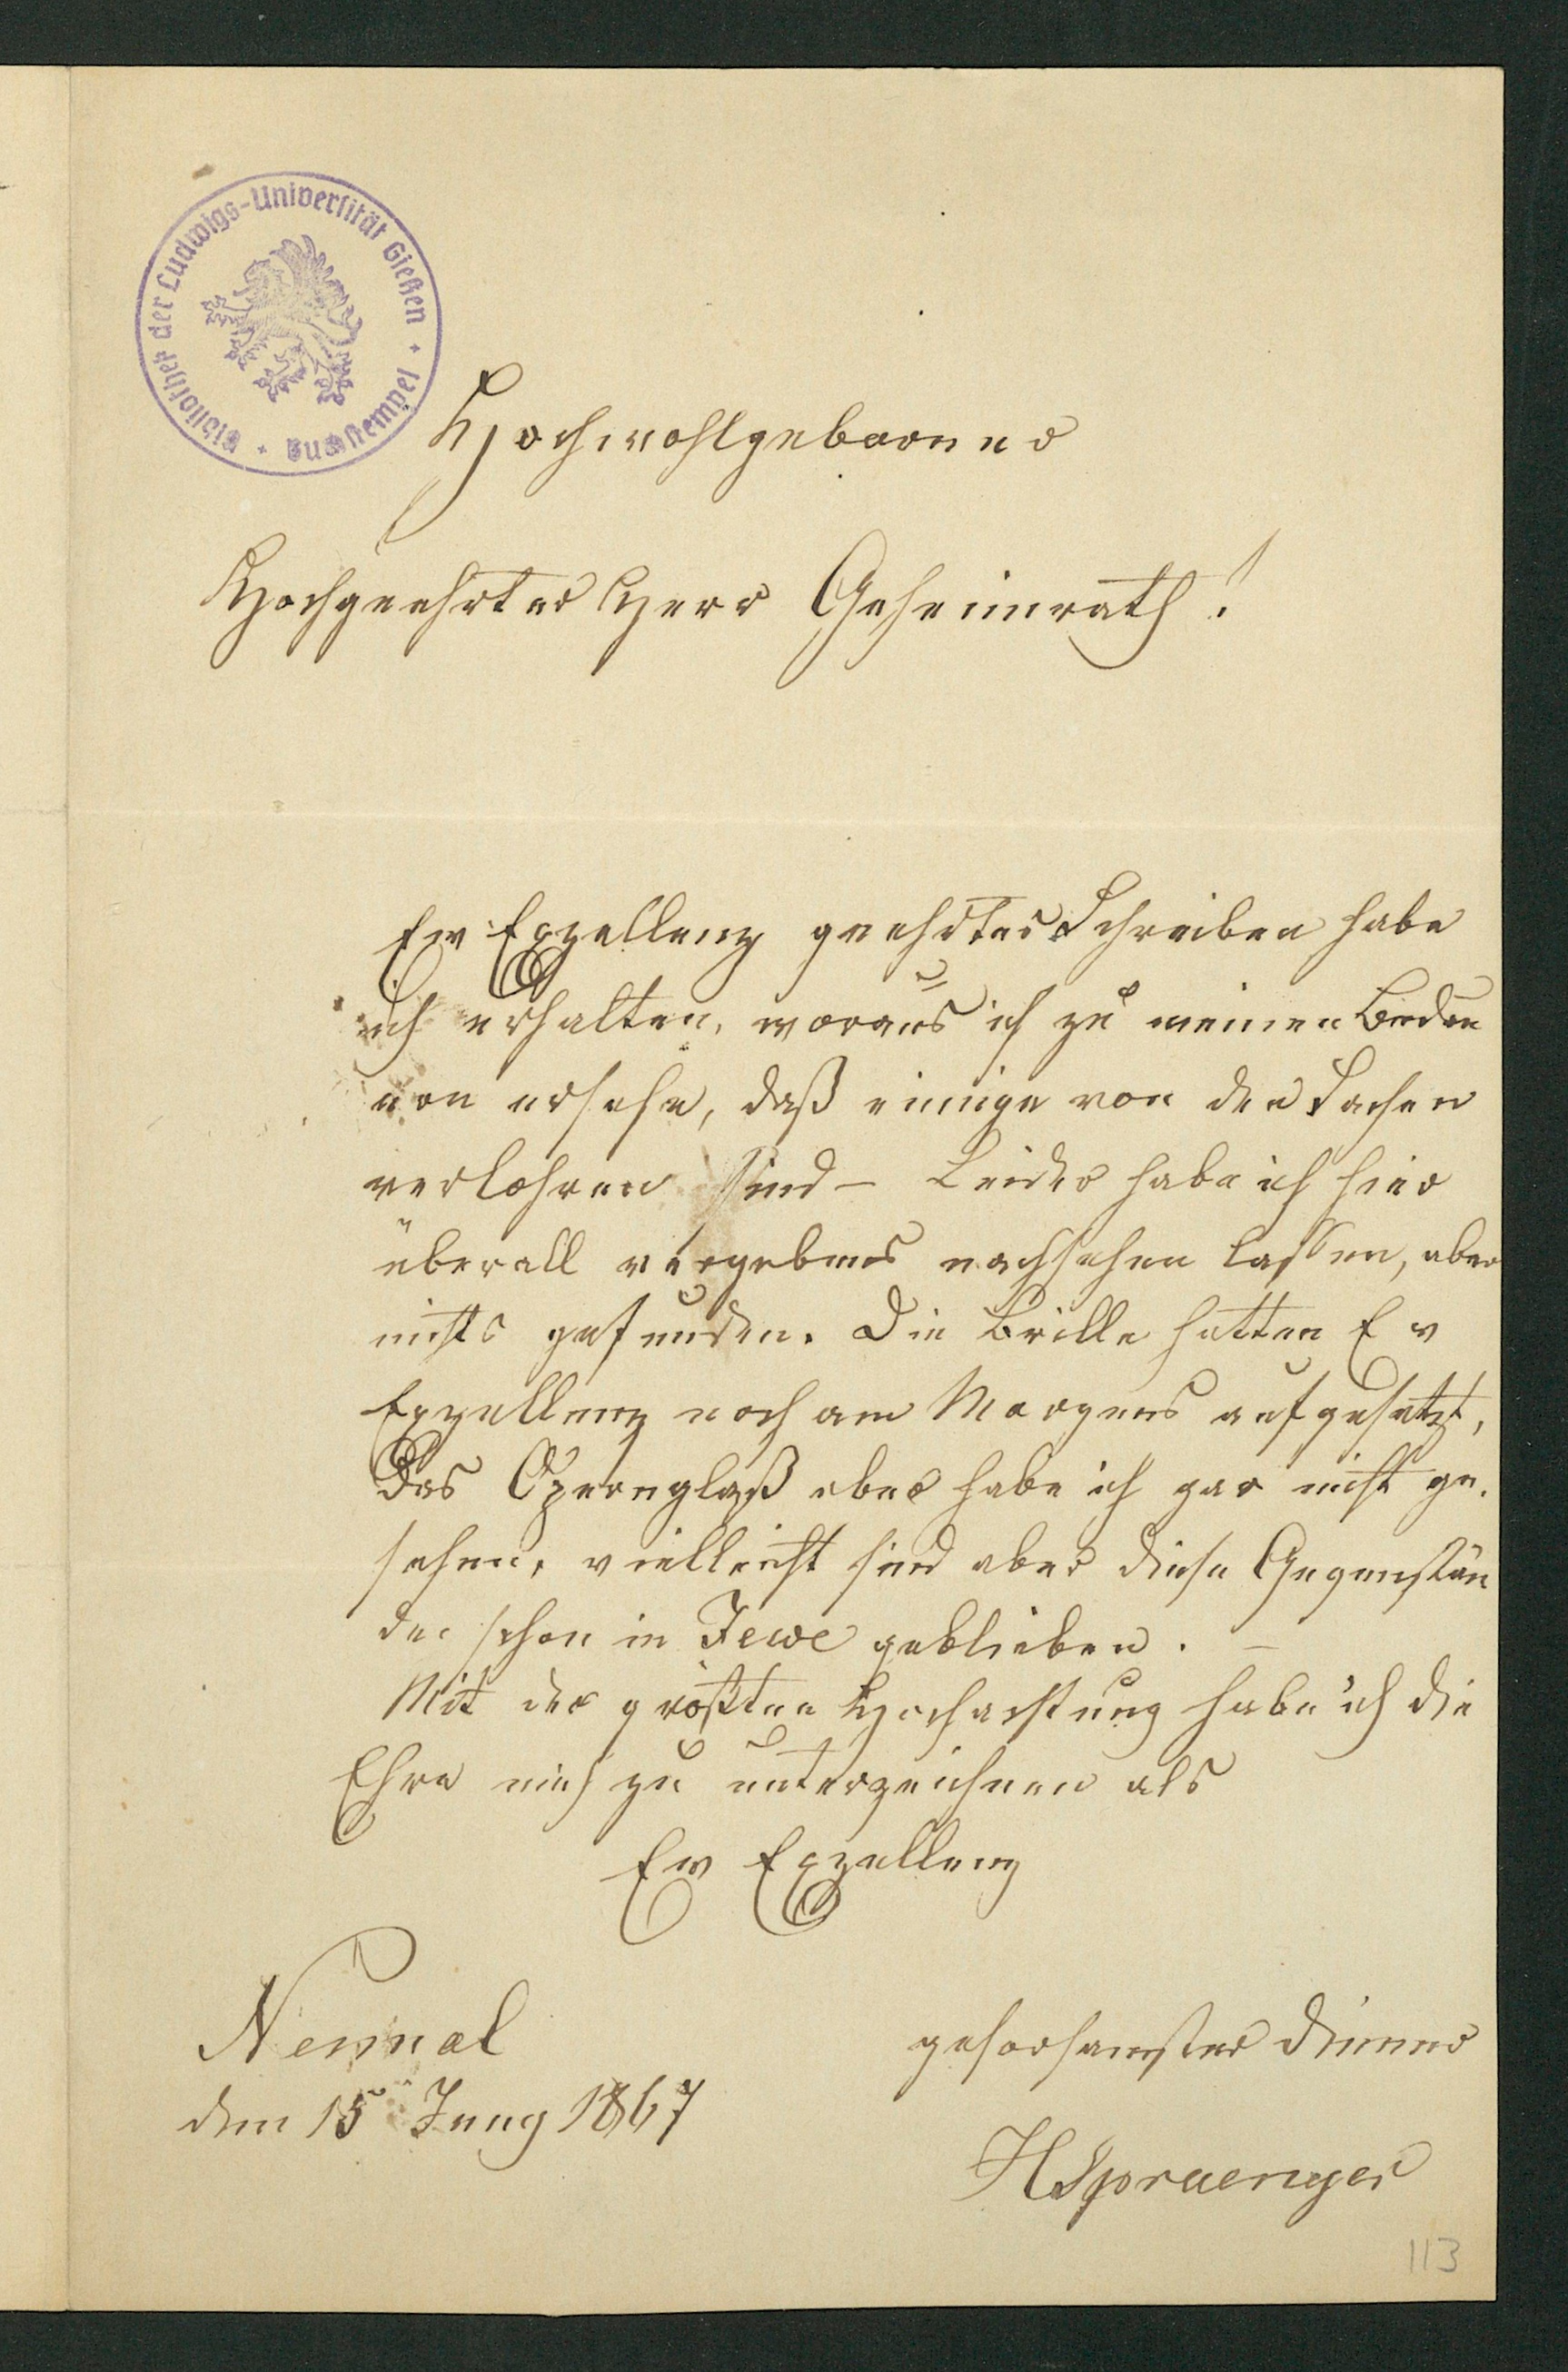 Bibliothek der Ludwigs-Universität Gießen
Buchstempel
Hochwohlgeborner
Hochgeehrter Herr Geheimrath!
Ew Exzellenz geehrtes Schreiben habe
ich erhalten, woraus ich zu meinen Bedau
ren ersehe, daß einige von den Sachen
verlohren sind – Leider habe ich hier
überall vergebens nachsehen lassen, aber
nichts gefunden. Die Brille hatten Ew
Exzellenz noch am Morgens aufgesetzt,
das Opernglaß aber habe ich gar nicht ge-
sehen, vielleicht sind aber diese Gegenstän
de schon in Jewe geblieben. –
Mit der größten Hochachtung habe ich die
Ehre mich zu unterzeichnen als
Ew Exzellenz
Nennal
den 15 Juny 1867
gehorsamster Diener
HSpraenger
113